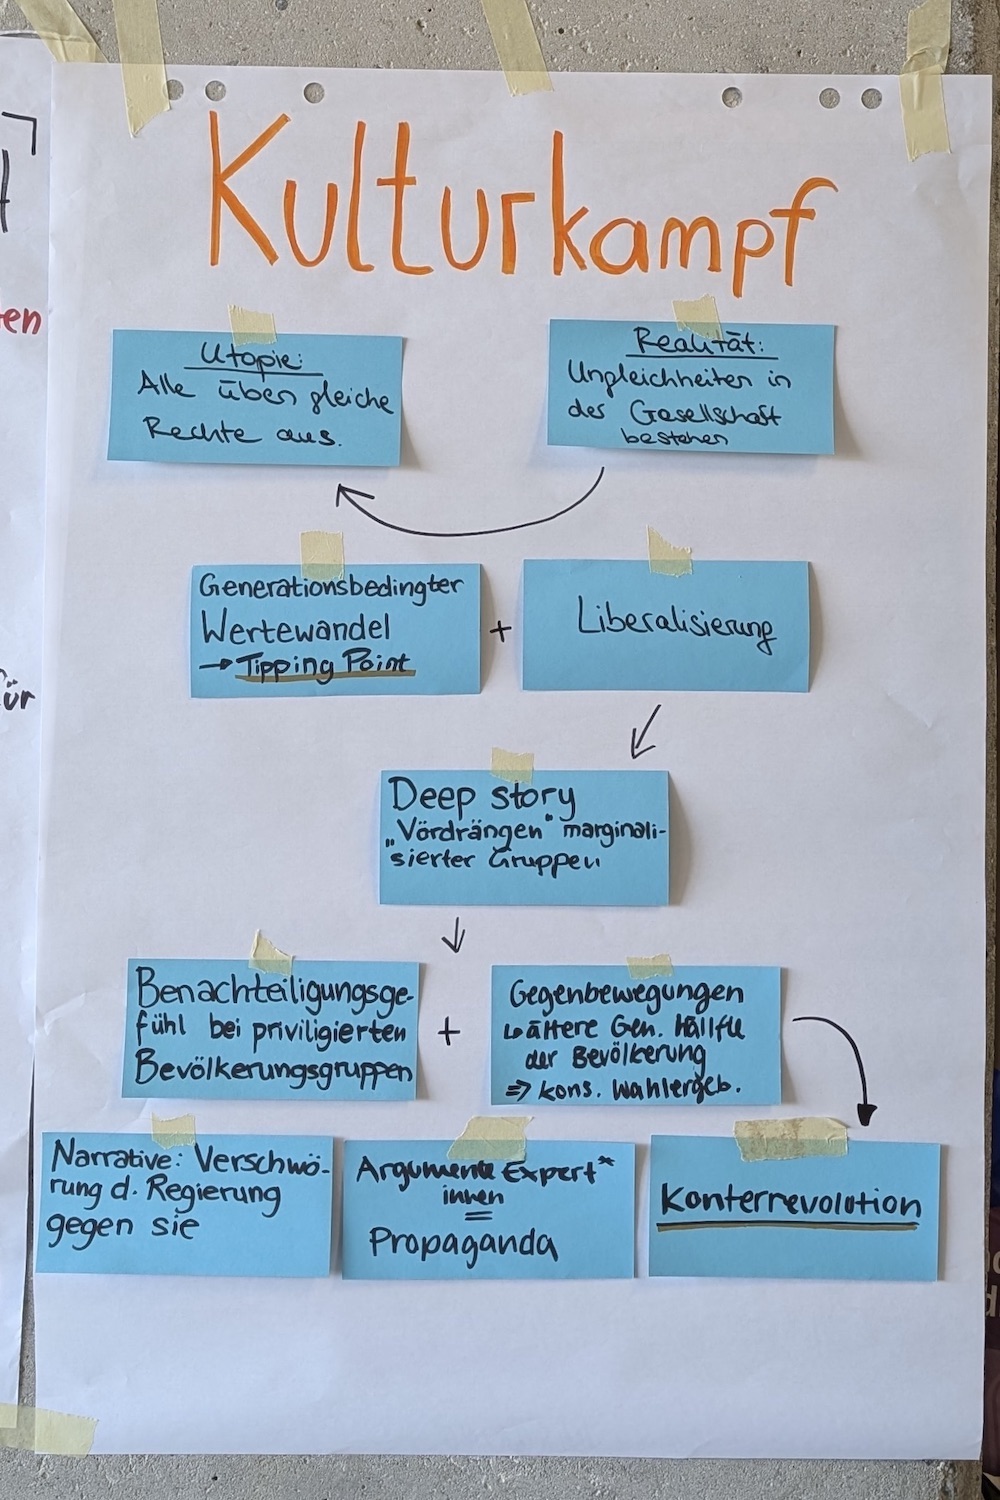 Kulturkampf
Utopie:
Alle üben gleiche
Rechte aus.
Realität:
Ungleichheiten in
der Gesellschaft
bestehen
Generationsbedingter
Wertewandel
→ Tipping Point
+
Liberalisierung
Deep story
„Vordrängen" marginali-
sierter Gruppen
Benachteiligungsge-
fühl bei priviligierten
Bevölkerungsgruppen
+
Gegenbewegungen
↳ ältere Gen. Hällfte
der Bevölkerung
⇒ kons. Wahlergeb.
Narrative: Verschwö-
rung d. Regierung
gegen sie
Argumente Expert*
innen
=
Propaganda
Konterrevolution
en
für